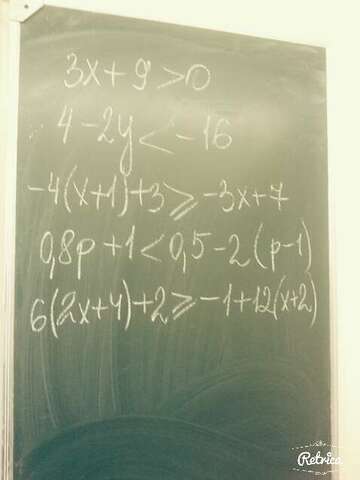 3x+9>0
4-2y<-16
-4(x+1)+3⩾-3x+7
0,8p+1<0,5-2(p-1)
6(2x+4)+2⩾-1+12(x+2)
Retrica